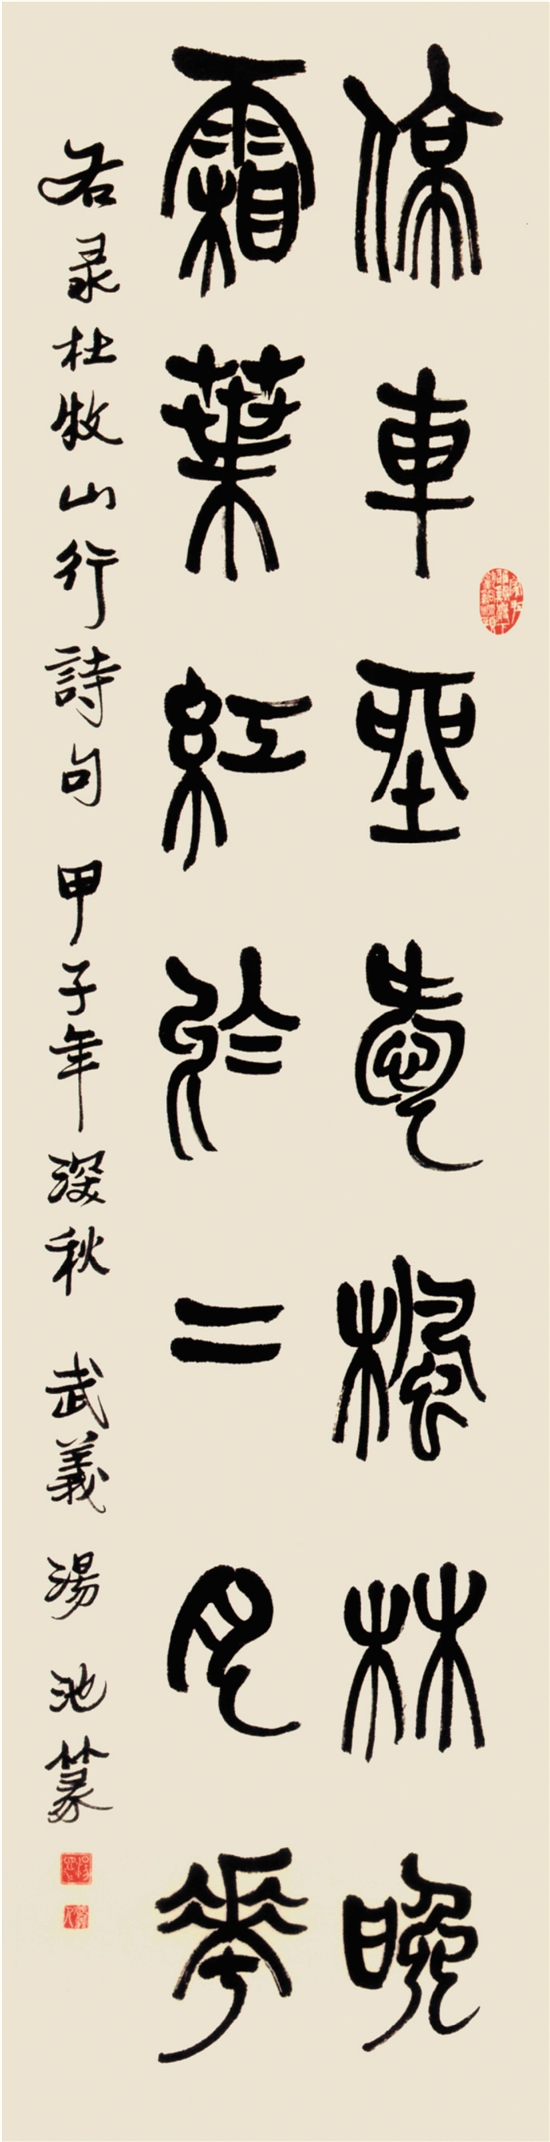 停車坐愛楓林晚
霜葉紅於二月花
右录杜牧山行詩句 甲子年深秋 武義 湯池篆